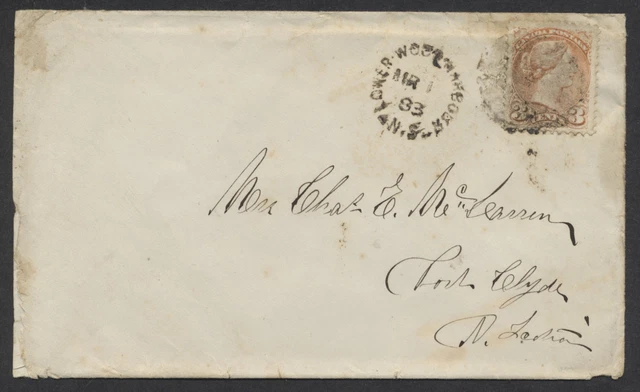 LOWER WOOD HARBOUR
MR 1
83
N.S.
CANADA POSTAGE
3 CENTS 3
Mrs Chas E. McLarren
Port Clyde
N. Scotia